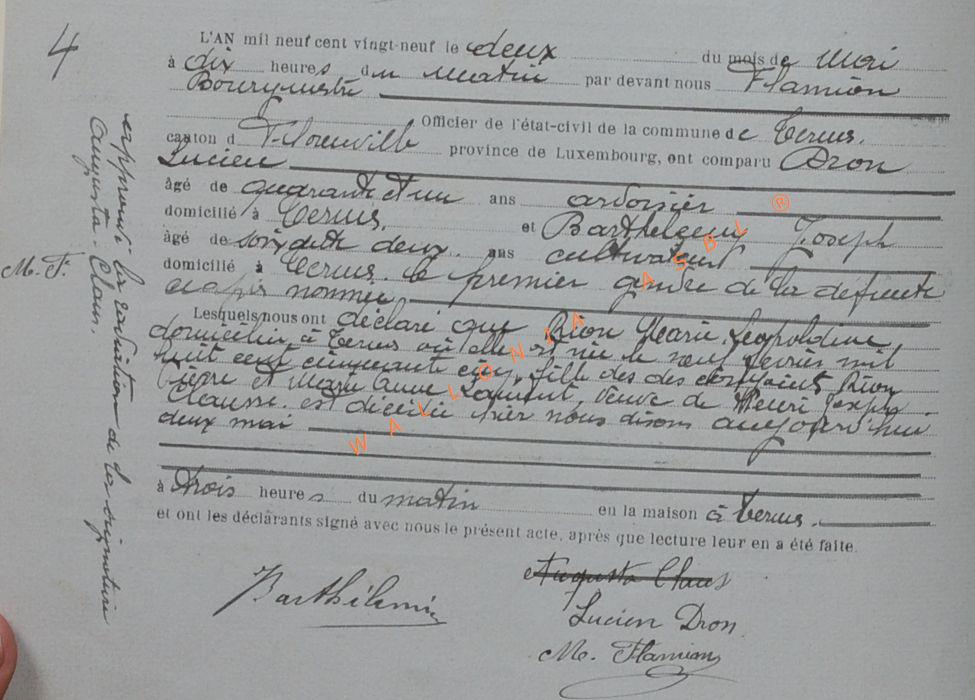 4
L'AN mil neuf cent vingt-neuf le deux du mois de Mai
à dix heures du matin par devant nous Flamion
Bourgmestre
Officier de l'état-civil de la commune de Termes.
canton d Florenville province de Luxembourg, ont comparu Dron
Lucien
âgé de quarante et un ans ardoisier
domicilié à Termes. et Barthélemy Joseph
âgé de soixante deux ans cultivateur
domicilié à Termes. le premier gendre de la défunte
ci après nommée,
Lesquels nous ont déclaré que Rion Marie Léopoldine,
domiciliée à Termes où elle est née le neuf février mil
huit cent cinquante cinq, fille des des conjoints Rion
Pierre et Marie Anne Laurent, veuve de Henri Joseph
Clausse. est décédée hier nous disons aujourd'hui
deux mai
à trois heures du matin en la maison à Termes.
et ont les déclarants signé avec nous le présent acte, après que lecture leur en a été faite.
Barthélemy
Augusta Claus
Lucien Dron
M. Flamion
approuvé la radiation de la signature
Augusta Claus.
M. F.
WALLONIA ASBL ®